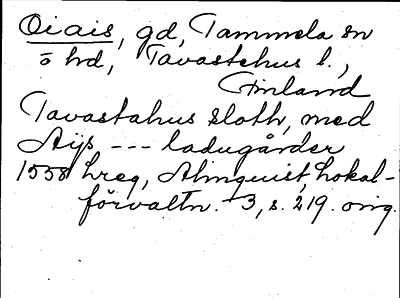 Oiais, gd, Tammela sn
o hd, Tavastehus l.,
Finland
Tavastahus sloth, med
Aijs --- ladugårder
1558 hreg, Almquist, Lokal-
förvaltn. 3, s. 219. orig.